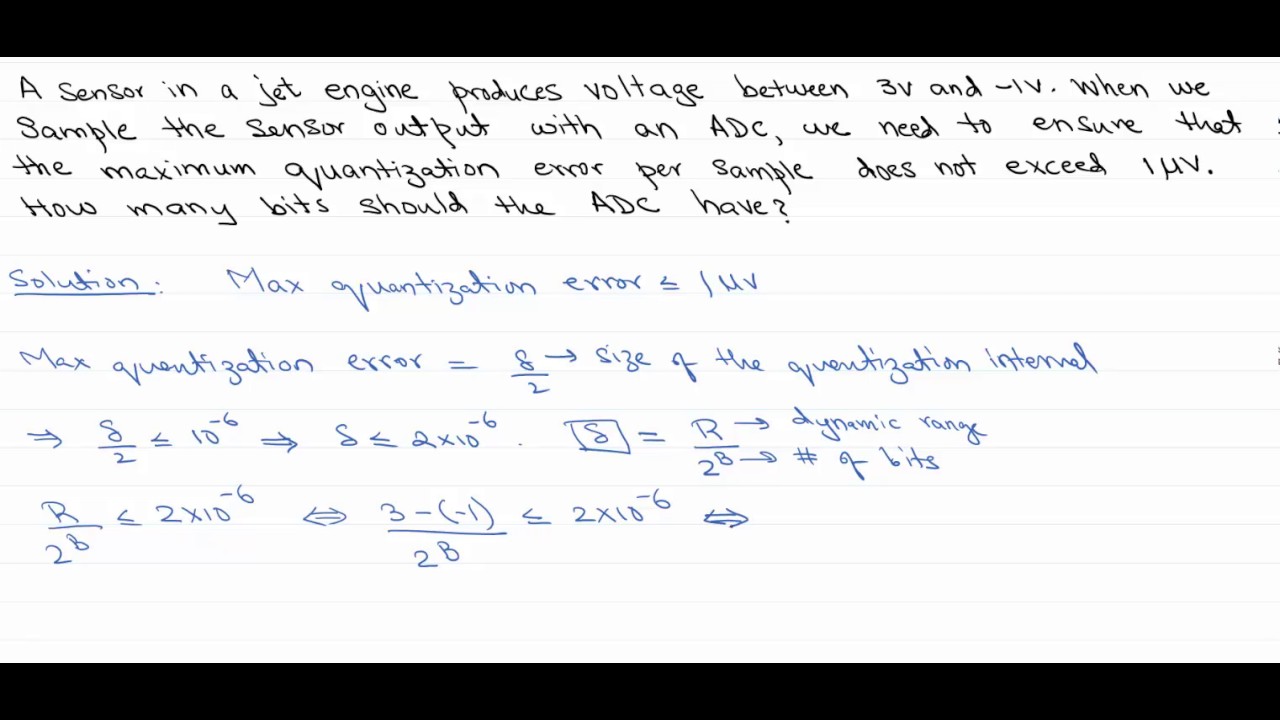 A sensor in a jet engine produces voltage between 3v and -1v. When we
Sample the sensor output with an ADC, we need to ensure that
the maximum quantization error per sample does not exceed 1μV.
How many bits should the ADC have?
Solution: Max quantization error ≤ 1μV
Max quantization error = δ/2 → size of the quantization interval
⇒ δ/2 ≤ 10^-6 ⇒ δ ≤ 2×10^-6. δ = R/2^B R → dynamic range
B → # of bits
R/2^B ≤ 2×10^-6 ⇔ (3-(-1))/2^B ≤ 2×10^-6 ⇔